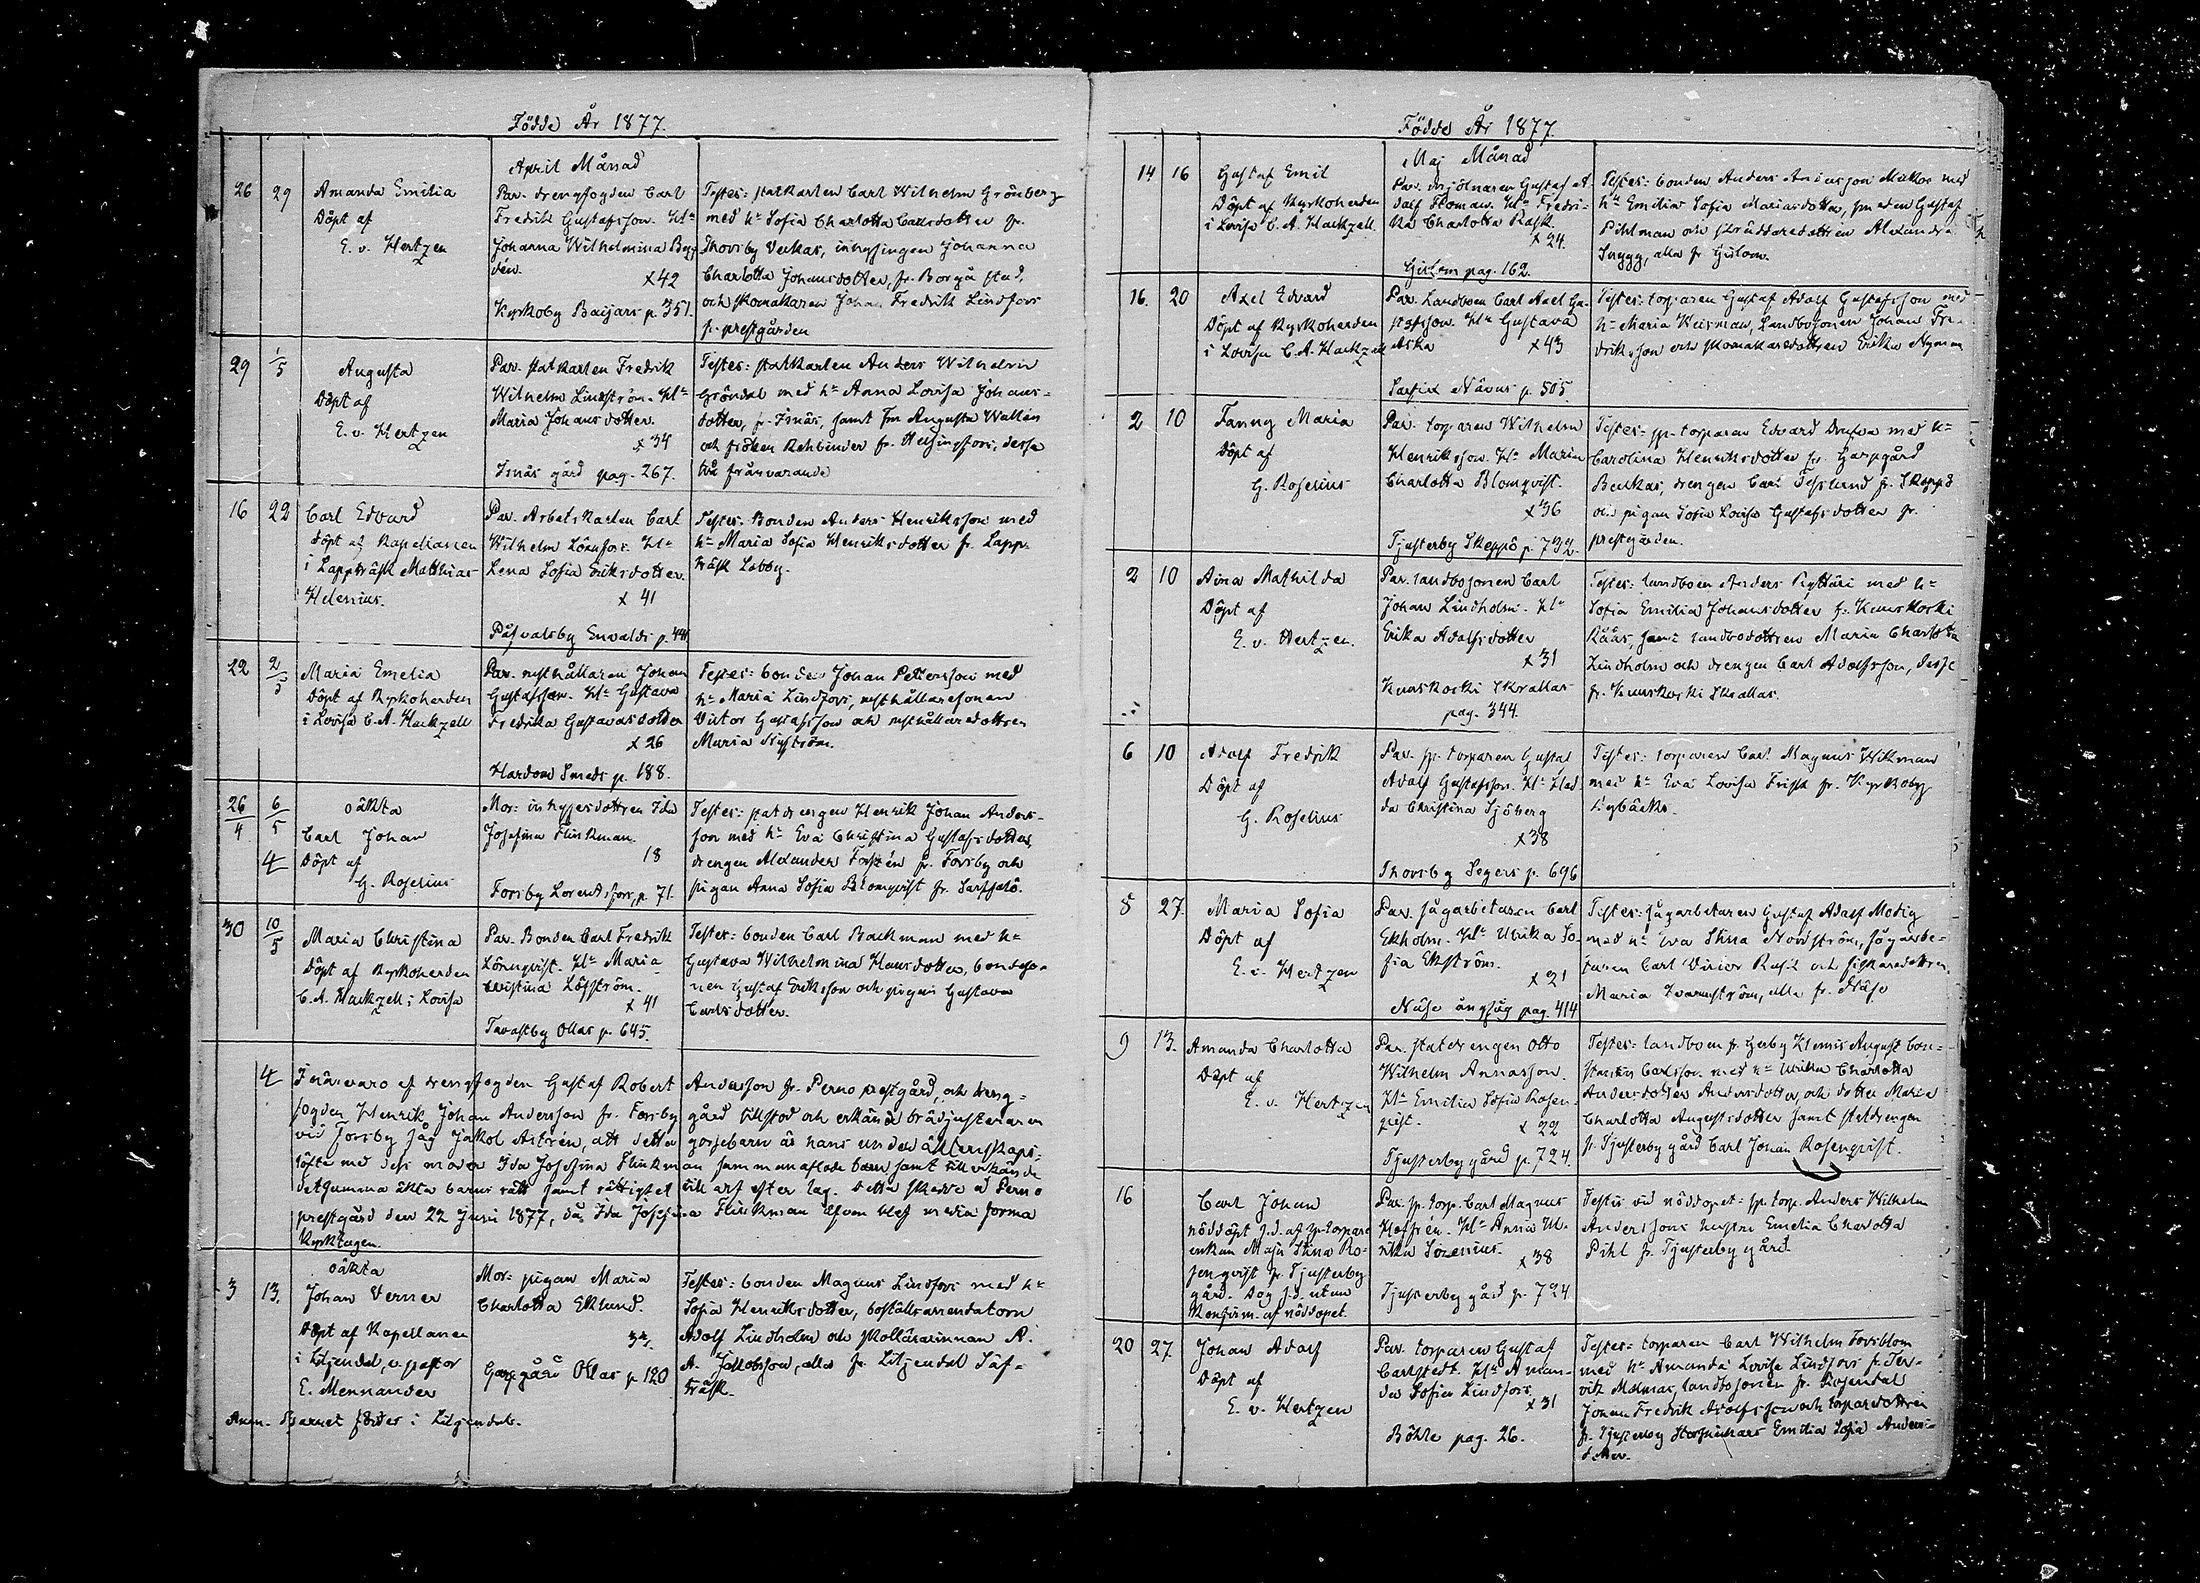 Födde År 1877.
April Månad
26 29 Amanda Emilia
Döpt af
E. v. Hertzen
Par. drengfogden Carl
Fredrik Gustafsson. H:u
Johanna Wilhelmina Byg-
dén.
x 42
Kyrkoby Baijars p. 351.
Testes: statkarlen Carl Wilhelm Grönberg
med h:u Sofia Charlotta Carlsdotter fr.
Thorsby Veckas, inhysingen Johanna
Charlotta Johansdotter, fr. Borgå stad,
och skomakaren Johan Fredrik Lindfors
fr. prestgården
29 1/5 Augusta
Döpt af
E. v. Hertzen
Par. statkarlen Fredrik
Wilhelm Lindström. H:u
Maria Johansdotter.
x 34
Isnäs gård pag. 267.
Testes: statkarlen Anders Wilhelm
Gröndal med h:u Anna Lovisa Johans-
dotter, fr. Isnäs, samt fru Augusta Wallén
och fröken Rehbinder fr. Helsingfors, dessa
två frånvarande
16 22 Carl Edvard
döpt af Kapellanen
i Lappträsk Matthias
Helenius.
Par. Arbetskarlen Carl
Wilhelm Lönnfors. H:u
Lena Sofia Eriksdotter.
x 41
Påsvalsby Envalds p. 441
Testes: Bonden Anders Henriksson med
h:u Maria Sofia Henriksdotter fr. Lapp-
träsk Labby.
22 2/5 Maria Emelia
Döpt af Kyrkoherden
i Lovisa C. A. Hackzell
Par. rusthållaren Johan
Gustafsson. H:u Gustava
Fredrika Gustavasdotter
x 26
Hardom Smeds p. 188.
Testes: bonden Johan Pettersson med
h:u Maria Lindfors, rusthållaresonen
Victor Gustafsson och rusthållaredottren
Maria Nyström.
26/4 6/5 oäkta
Carl Johan
4 Döpt af
G. Roselius
Mor: inhysesdottren Ida
Josefina Flinkman.
18
Forsby Lorentsfors, p. 71.
Testes: statdrengen Henrik Johan Anders-
son med h:u Eva Christina Gustafsdotter,
drengen Alexander Forstén fr. Forsby och
pigan Anna Sofia Blomqvist fr. Sarfsalö.
30 10/5 Maria Christina
Döpt af Kyrkoherden
C. A. Hackzell i Lovisa
Par. Bonden Carl Fredrik
Lönnqvist. H:u Maria
Christina Löfström.
x 41
Tavastby Ollas p. 645.
Testes: bonden Carl Backman med h:u
Gustava Wilhelmina Hansdotter, bondso-
nen Gustaf Eriksson och pigan Gustava
Carlsdotter.
4 I närvaro af drengfogden Gustaf Robert Andersson fr. Perno prestgård, och dreng-
fogden Henrik Johan Andersson fr. Forsby gård tillstod och erkände brädjusteraren
vid Forsby såg Jakob Astrén, att detta gossebarn är hans under äktenskaps-
löfte med dess moder Ida Josefina Flinkman sammanaflade barn samt tillerkände
detsamma äkta barns rätt samt rättighet till arf efter lag. Detta skedde å Perno
prestgård den 22 Juni 1877, då Ida Josefina Flinkman äfven blef in via forma
kyrktagen.
3 13. oäkta
Johan Verner
Döpt af Kapellanen
i Liljendal, v. pastor
E. Mennander
Mor: pigan Maria
Charlotta Eklund.
34.
Garpgård Ollas p. 120
Testes: bonden Magnus Lindfors med h:u
Sofia Henriksdotter, boställsarrendatorn
Adolf Lindholm och skollärarinnan A.
A. Jakobsson, alla fr. Liljendal Säf-
träsk.
Anm. Barnet födes i Liljendal.
Födde År 1877.
Maj Månad
14 16 Gustaf Emil
Döpt af Kyrkoherden
i Lovisa C. A. Hackzell.
Par. mjölnaren Gustaf A-
dolf Homan. H:u Fredri-
ka Charlotta Rask.
x 24.
Gislom pag. 162.
Testes: bonden Anders Andersson Mickos med
h:u Emilia Sofia Mariasdotter, smeden Gustaf
Pihlman och skräddaredottren Alexandra
Snygg, alla fr. Gislom.
16. 20 Axel Edvard
Döpt af Kyrkoherden
i Lovisa C. A. Hackzell
Par. Landboen Carl Axel Gu-
stafsson. H:u Gustava
Aska
x 43
Sarfsalö Näveus p. 505.
Testes: torparen Gustaf Adolf Gustafsson med
h:u Maria Heisman, Landbosonen Johan Fre-
driksson och skomakaredottren Erika Nyman
2 10 Fanny Maria
Döpt af
G. Roselius
Par. torparen Wilhelm
Henriksson. H:u Maria
Charlotta Blomqvist.
x 36
Tjusterby Skeppö p. 732.
Testes: sp. torparen Edvard Drufva med h:u
Carolina Henriksdotter fr. Garpgård
Beckas, drengen Carl Teslund fr. Skeppö
och pigan Sofia Lovisa Gustafsdotter fr.
prestgården.
2 10 Aina Mathilda
Döpt af
E. v. Hertzen.
Par. landbosonen Carl
Johan Lindholm. H:u
Erika Adolfsdotter
x 31
Kuuskoski Skrallas
pag. 344.
Testes: landboen Anders Ryttäri med h:u
Sofia Emilia Johansdotter fr. Kuuskoski
Råårs, samt landbodottren Maria Charlotta
Lindholm och drengen Carl Adolfsson, desse
fr. Kuuskoski Skrallas.
6 10 Adolf Fredrik
Döpt af
G. Roselius
Par. sp. torparen Gustaf
Adolf Gustafsson. H:u Hed-
da Christina Sjöberg
x 38
Thorsby Segers p. 696
Testes: torparen Carl Magnus Wikman
med h:u Eva Lovisa Frisk fr. Kyrkoby
Nybäcks.
5 27. Maria Sofia
Döpt af
E. v. Hertzen
Par. sågarbetaren Carl
Ekholm. H:u Ulrika So-
fia Ekström.
x 21
Näse ångsåg pag. 414
Testes: sågarbetaren Gustaf Adolf Modig
med h:u Eva Stina Nordström, sågarbe-
taren Carl Victor Rask och fiskaredottren
Maria Kvarnström, alla fr. Näse
9 13. Amanda Charlotta
Döpt af
E. v. Hertzen
Par. statdrengen Otto
Wilhelm Annasson.
H:u Emilia Sofia Rosen-
qvist.
x 22
Tjusterby gård p. 724.
Testes: landboen fr. Gerby Hemis August Con-
stantin Carlsson med h:u Ulrika Charlotta
Andersdotter Andersdotter, och dotter Maria
Charlotta Augustsdotter samt statdrengen
fr. Tjusterby gård Carl Johan Rosenqvist.
16 Carl Johan
nöddöpt s.d. af sp. torpare
enkan Maja Stina Ro-
senqvist fr. Tjusterby
gård. Dog s.d. utan
Konfirm. af nöddopet.
Par. sp. torp. Carl Magnus
Hoffrén. H:u Anna Ul-
rika Lorenius.
x 38
Tjusterby gård p. 724.
Testis vid nöddopet: sp. torp. Anders Wilhelm
Anderssons hustru Emelia Charlotta
Pihl fr. Tjusterby gård
20 27. Johan Adolf
Döpt af
E. v. Hertzen
Par. torparen Gustaf
Carlstedt. H:u Aman-
da Sofia Lindfors.
x 31
Böhle pag. 26.
Testes: torparen Carl Wilhelm Forsblom
med h:u Amanda Lovisa Lindfors fr. Ter-
vik Malmas, landbosonen fr. Rosendal
Johan Fredrik Adolfsson och torparedottren
fr. Tjusterby Storfinnars Emilia Sofia Anders-
dotter.